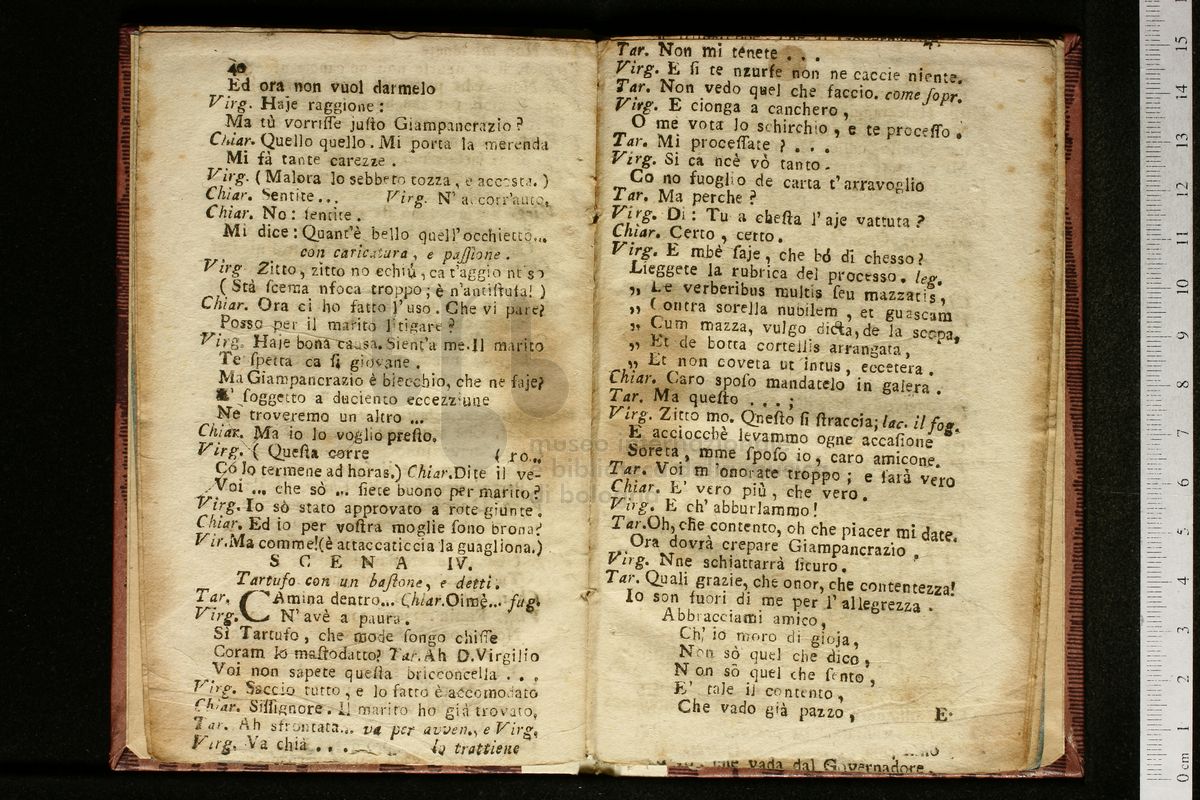 40
Ed ora non vuol darmelo
Virg. Haje raggione:
Ma tù vorriſſe juſto Giampancrazio?
Chiar. Quello quello. Mi porta la merenda
Mi fà tante carezze.
Virg. (Malora lo sebbeto tozza, e accosta.)
Chiar. Sentite... Virg. N' accorr'auto,
Chiar. No: ſentite.
Mi dice: Quant'è bello quell'occhietto...
con caricatura, e paſſione.
Virg Zitto, zitto no echiù, ca t'aggio
(Stà ſcema nfoca troppo; è n'antiſtuſa!)
Chiar. Ora ci ho fatto l'uso. Che vi pare?
Posso per il marito litigare?
Virg. Haje bona causa. Sient'a me. Il marito
Te ſpetta ca ſi giovane.
Ma Giampancrazio è biecchio, che ne ſaje?
ſoggetto a duciento eccezziune
Ne troveremo un altro ...
Chiar. Ma io lo voglio preſto.
Virg. (Queſta corre (ro...
Có lo termene ad horas.) Chiar. Dite il ve-
Voi ... che sò ... ſiete buono per marito?
Virg. Io sò stato approvato a rote giunte.
Chiar. Ed io per voſtra moglie ſono brona?
Vir. Ma comme!(è attaccaticcia la guagliona.)
SCENA IV.
Tartufo con un baſtone, e detti.
Tar. CAmina dentro... Chiar. Oimè... fug.
Virg. N'avè a paura.
Sì Tartufo, che mode ſongo chiſſe
Coram lo maſtodatto? Tar. Ah D. Virgilio
Voi non sapete queſta bricconcella ...
Virg. Saccio tutto, e lo fatto è accomodato
Chiar. Siſſignore. Il marito ho già trovato,
Tar. Ah sfrontata... va per avven., e Virg.
Virg. Va chià ... lo trattiene
Tar. Non mi tenete ...
Virg. E ſi te nzurfe non ne caccie niente.
Tar. Non vedo quel che faccio. come ſopr.
Virg. E cionga a canchero,
O me vota lo schirchio, e te proceſſo.
Tar. Mi proceſſate? ...
Virg. Si ca ncè vò tanto.
Co no fuoglio de carta t'arravoglio
Tar. Ma perche?
Virg. Di: Tu a cheſta l'aje vattuta?
Chiar. Certo, certo.
Virg. E mbè ſaje, che bó di chesso?
Lieggete la rubrica del processo. leg.
„ De verberibus multis ſeu mazzatis,
„ Contra sorella nubilem, et guascam
„ Cum mazza, vulgo dicta, de la scopa,
„ Et de botta cortellis arrangata,
„ Et non coveta ut intus, eccetera.
Chiar. Caro spoſo mandatelo in galera.
Tar. Ma queſto ...;
Virg. Zitto mo. Queſto ſi ſtraccia; lac. il fog.
E acciocchè levammo ogne accaſione
Soreta, mme spoſo io, caro amicone.
Tar. Voi m'onorate troppo; e ſarà vero
Chiar. E' vero più, che vero.
Virg. E ch'abburlammo!
Tar. Oh, che contento, oh che piacer mi date.
Ora dovrà crepare Giampancrazio.
Virg. Nne schiattarrà ſicuro.
Tar. Quali grazie, che onor, che contentezza!
Io son fuori di me per l'allegrezza.
Abbracciami amico,
Ch' io moro di gioja,
Non sò quel che dico,
Non sò quel che ſento,
E' tale il contento,
Che vado già pazzo,
E'
che vada dal Governadore.
museo internazionale
e biblioteca della musica
di bologna
15
14
13
12
11
10
9
8
7
6
5
4
3
2
1
0 cm